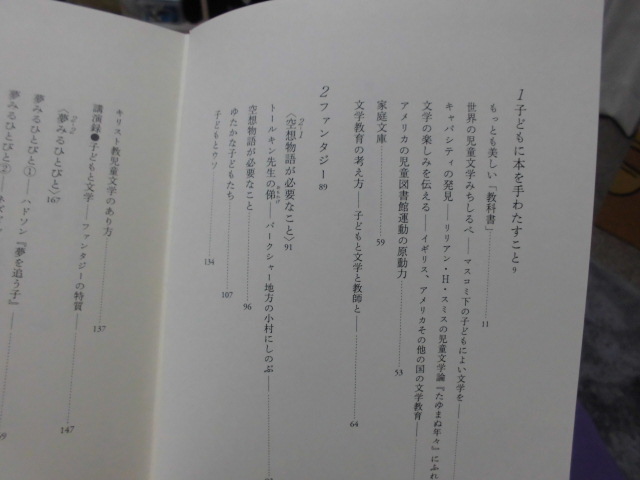 1 子どもに本を手わたすこと 9
もっとも美しい「教科書」 11
世界の児童文学みちしるべ――マスコミ下の子どもによい文学を――
キャパシティの発見――リリアン・H・スミスの児童文学論『たゆまぬ年々』にふれ
文学の楽しみを伝える――イギリス、アメリカその他の国の文学教育――
アメリカの児童図書館運動の原動力 53
家庭文庫 59
文学教育の考え方――子どもと文学と教師と―― 64
2 ファンタジー 89
2-1
〈空想物語が必要なこと〉 91
トールキン先生の俤――バークシャー地方の小村にしのぶ――
おもかげ
空想物語が必要なこと 96
ゆたかな子どもたち 107
子どもとウソ 134
キリスト教児童文学のあり方 137
講演録●子どもと文学――ファンタジーの特質―― 147
2-2
〈夢みるひとびと〉 167
夢みるひとびと① ――ハドソン『夢を追う子』――
夢みるひとびと②